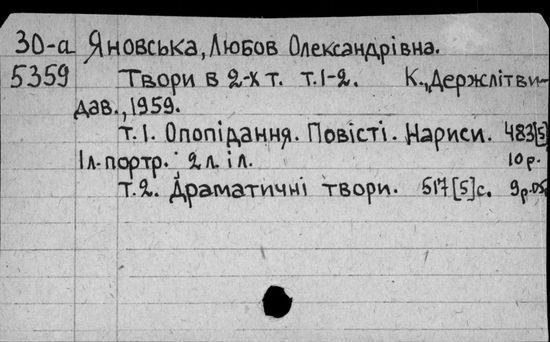 30-а Яновська, Любов Олександрівна.
5359 Твори в 2-х т. т.1-2. К., Держлітви-
дав., 1959.
т.1. Опопідання. Повісті. Нариси. 483[5]
1л. портр. ; 2 л. іл. 10 р.
т.2. Драматичні твори. 517[5]с. 9р.05